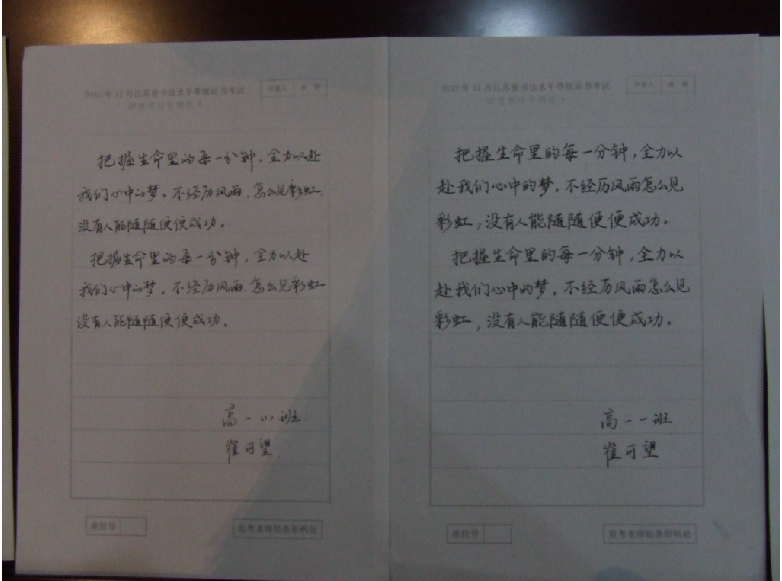 2005年11月江苏省书法水平等级证书考试
把握生命里的每一分钟，全力以赴
我们心中的梦。不经历风雨，怎么见彩虹
没有人能随随便便成功。
把握生命里的每一分钟，全力以赴
我们心中的梦。不经历风雨，怎么见彩虹
没有人能随随便便成功。
高一（1）班
崔可望
座位号
监考老师贴条形码处
江苏省书法水平等级证书考试
把握生命里的每一分钟，全力以
赴我们心中的梦。不经历风雨怎么见
彩虹，没有人能随随便便成功。
把握生命里的每一分钟，全力以
赴我们心中的梦。不经历风雨怎么见
彩虹，没有人能随随便便成功。
高一一班
崔可望
座位号
监考老师贴条形码处